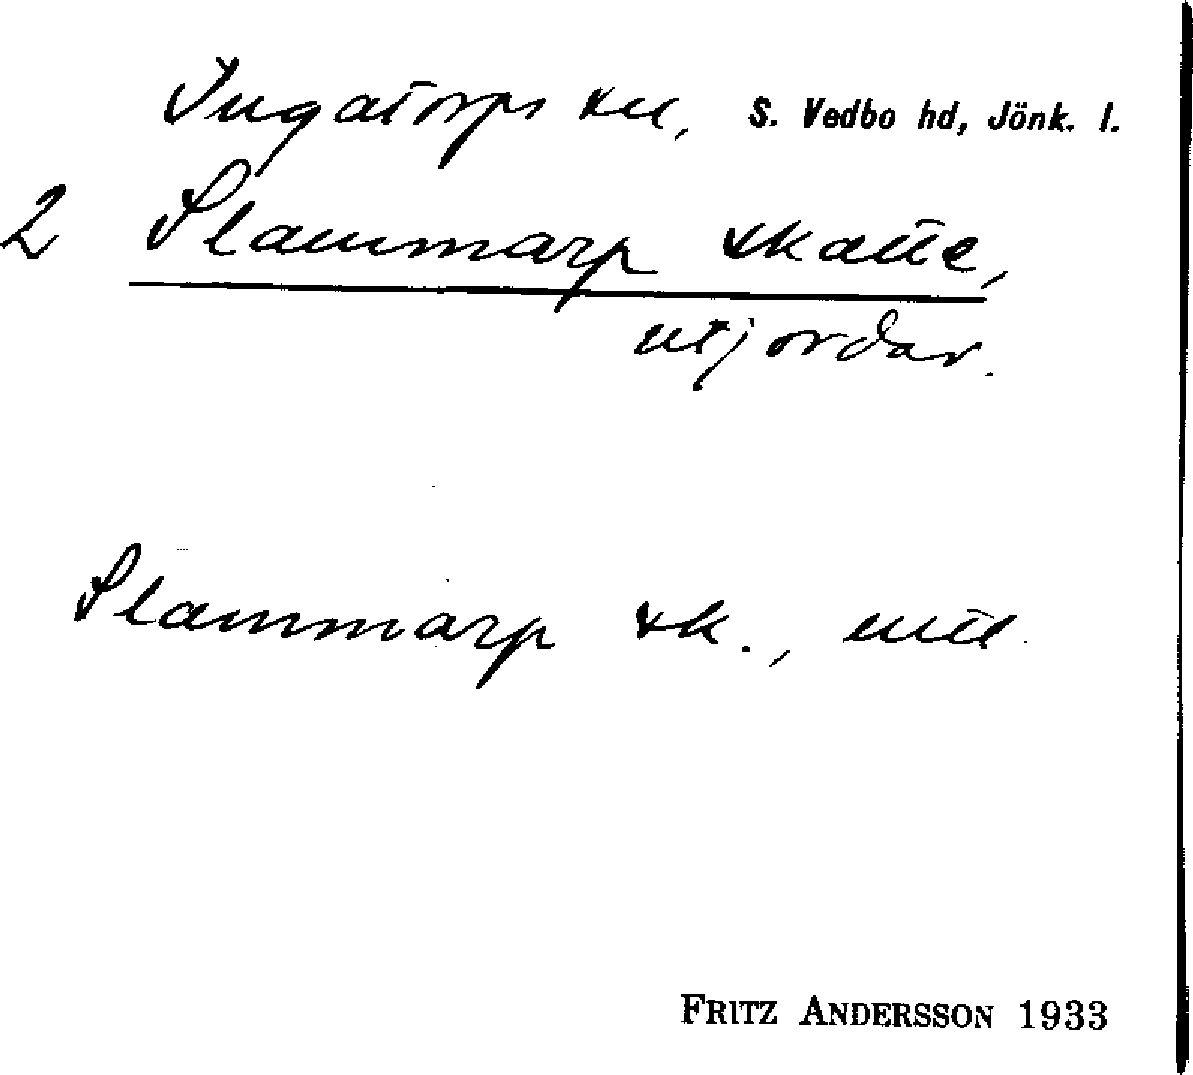 Ingatorps sn, S. Vedbo hd, Jönk. l.
2 Slammarp skatte,
utjordar.
Slammarp sk.,
FRITZ ANDERSSON 1933